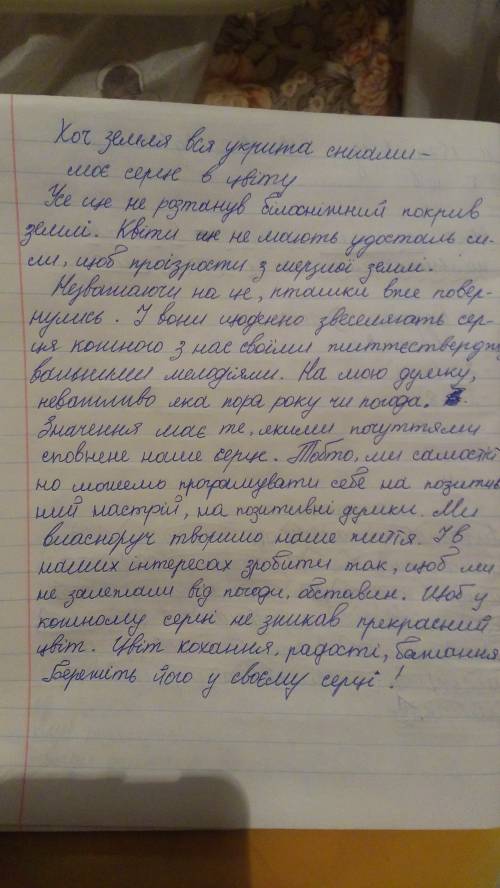 Хоч земля вся укрита снігами–
моє серце в цвіту
Уже не розтанув білосніжний покрив
землі. Квіти ще не мають удосталь си-
ли, щоб проізрости з мерзлої землі.
Незважаючи на це, пташки вже повер-
нулись. І вони щоденно звеселяють сер-
ця кожного з нас своїми життєстверджу
вальними мелодіями. На мою думку,
неважливо яка пора року чи погода.
Значення має те, якими почуттями
сповнене наше серце. Тобто, ми самостій
но можемо програмувати себе на позитив
ний настрій, на позитивні думки. Ми
власноруч творимо наше життя. І в
наших інтересах зробити так, щоб ми
не залежали від погоди, обставин. Щоб у
кожному серці не зникав прекрасний
цвіт. Цвіт кохання, радості, бажання
Бережіть його у своєму серці!